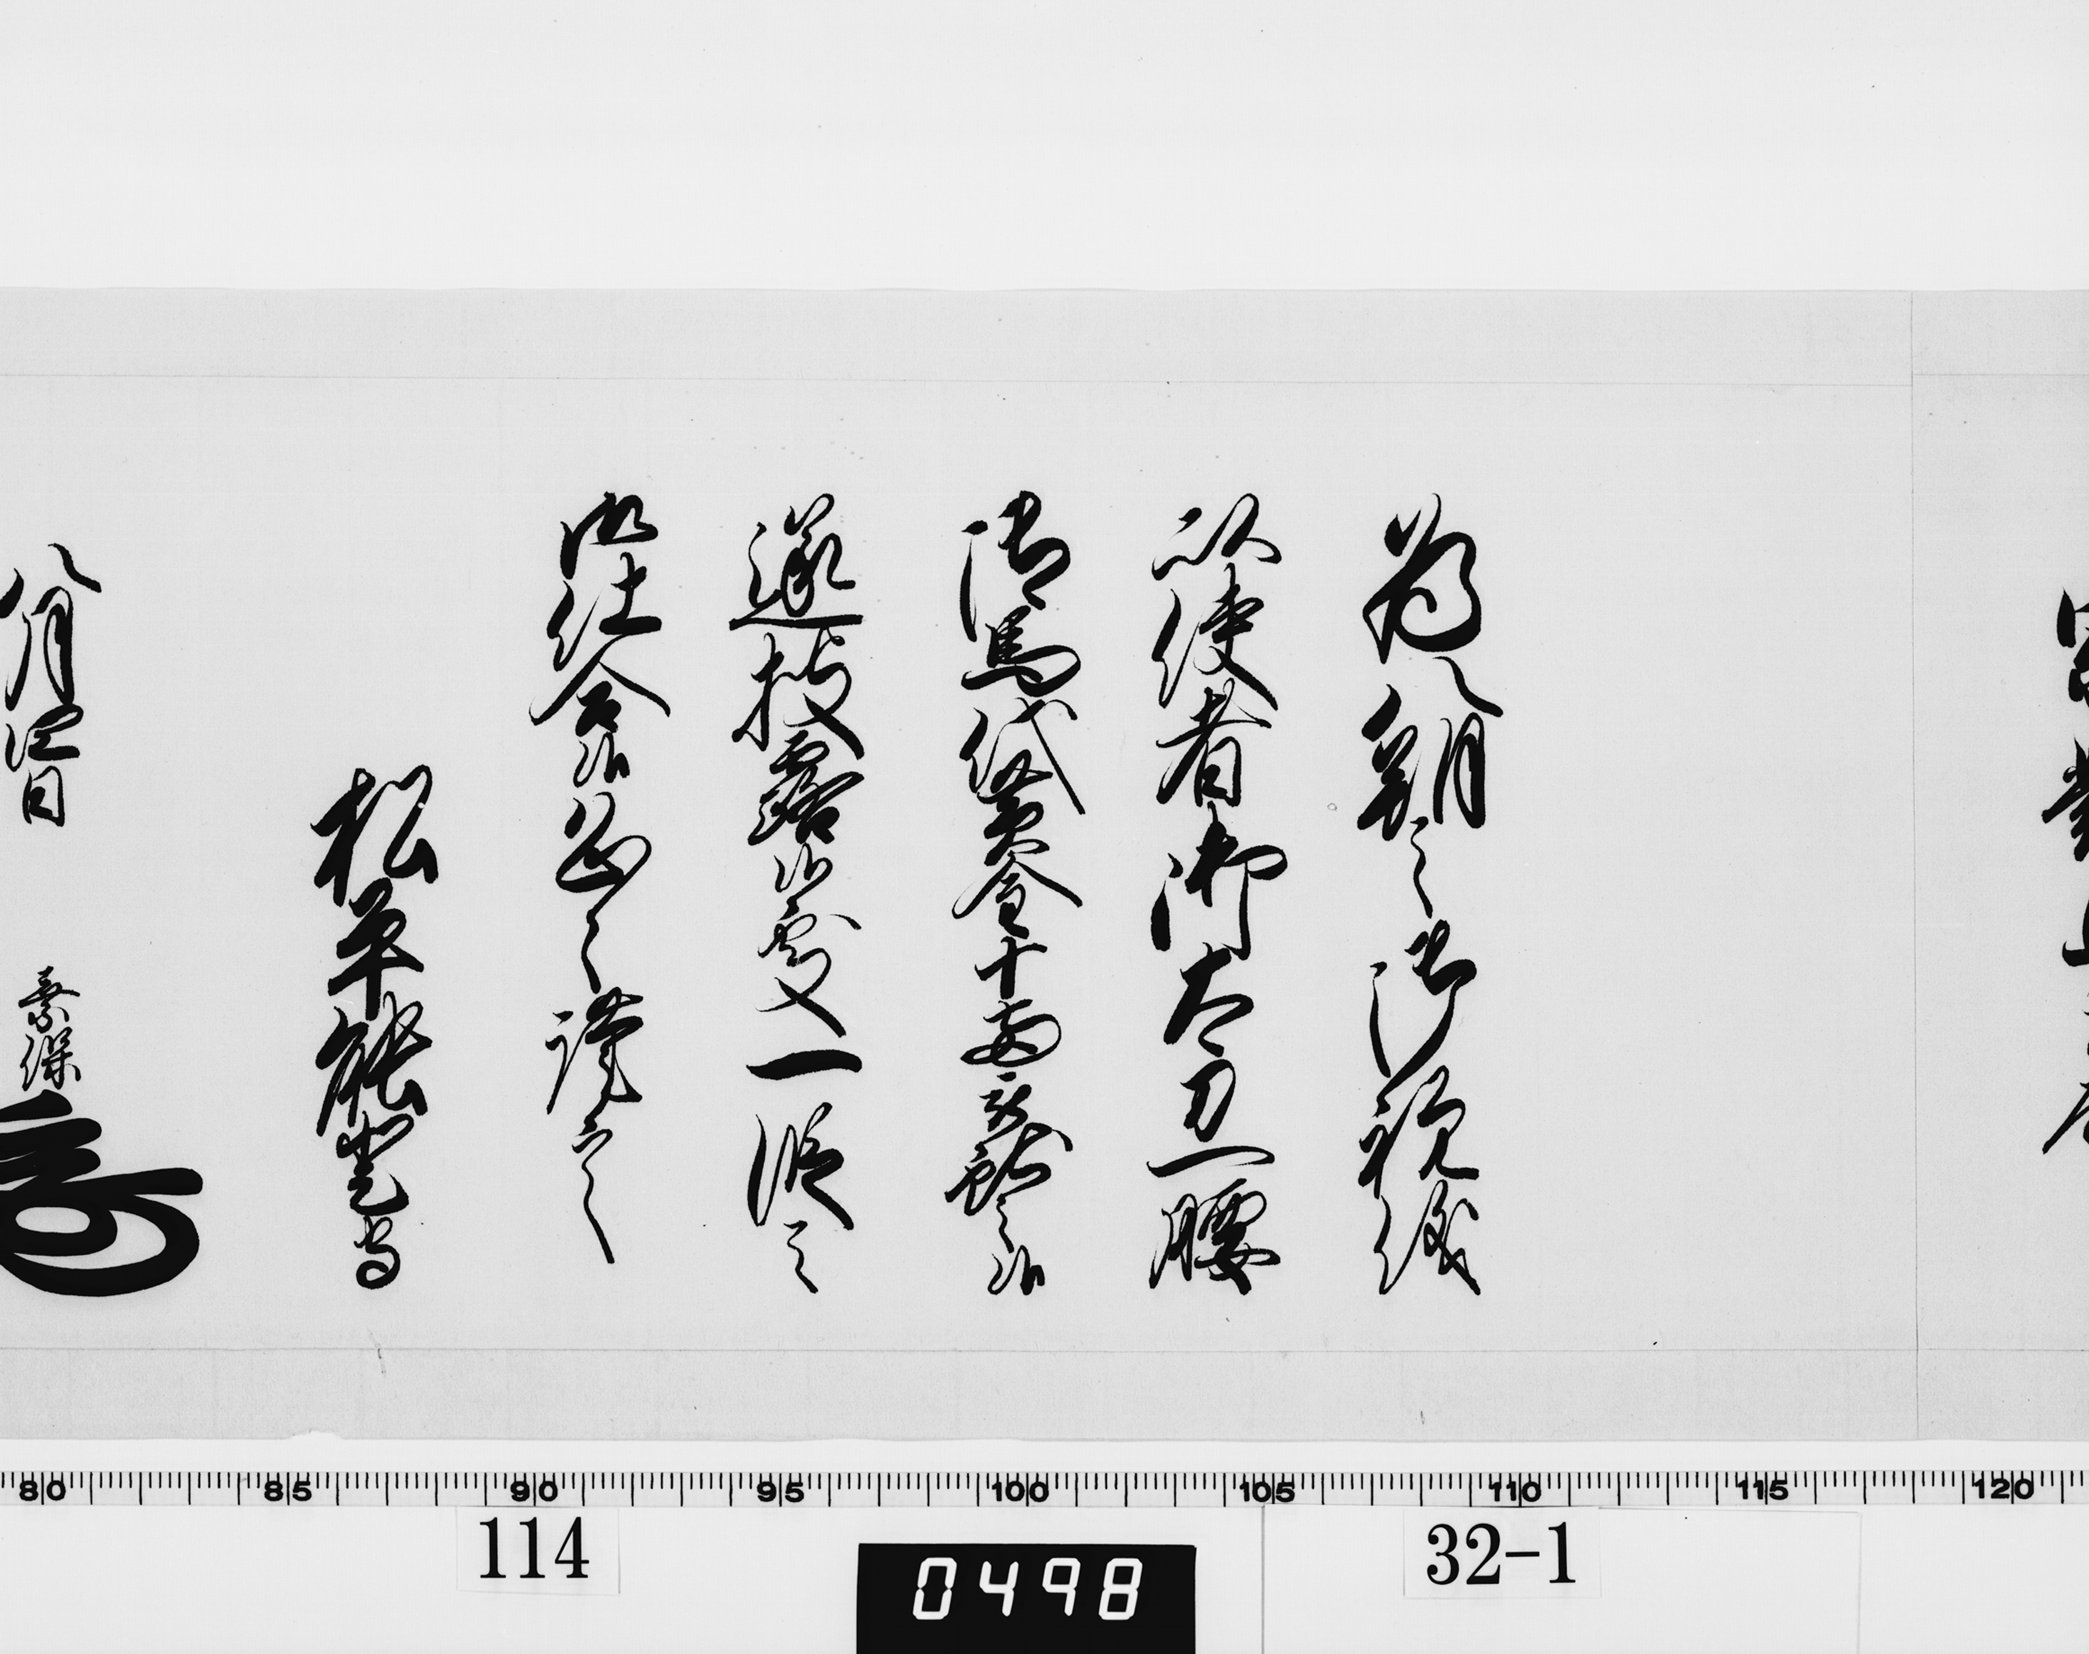 為八朔之御祝儀
以使者御太刀一腰
御馬代黄金十両被献之候
遂披露候処一段之
御仕合候恐々謹言
松平能登守
八月 日 乗保
80 85 90 95 100 105 110 115 120
114
0498
32-1